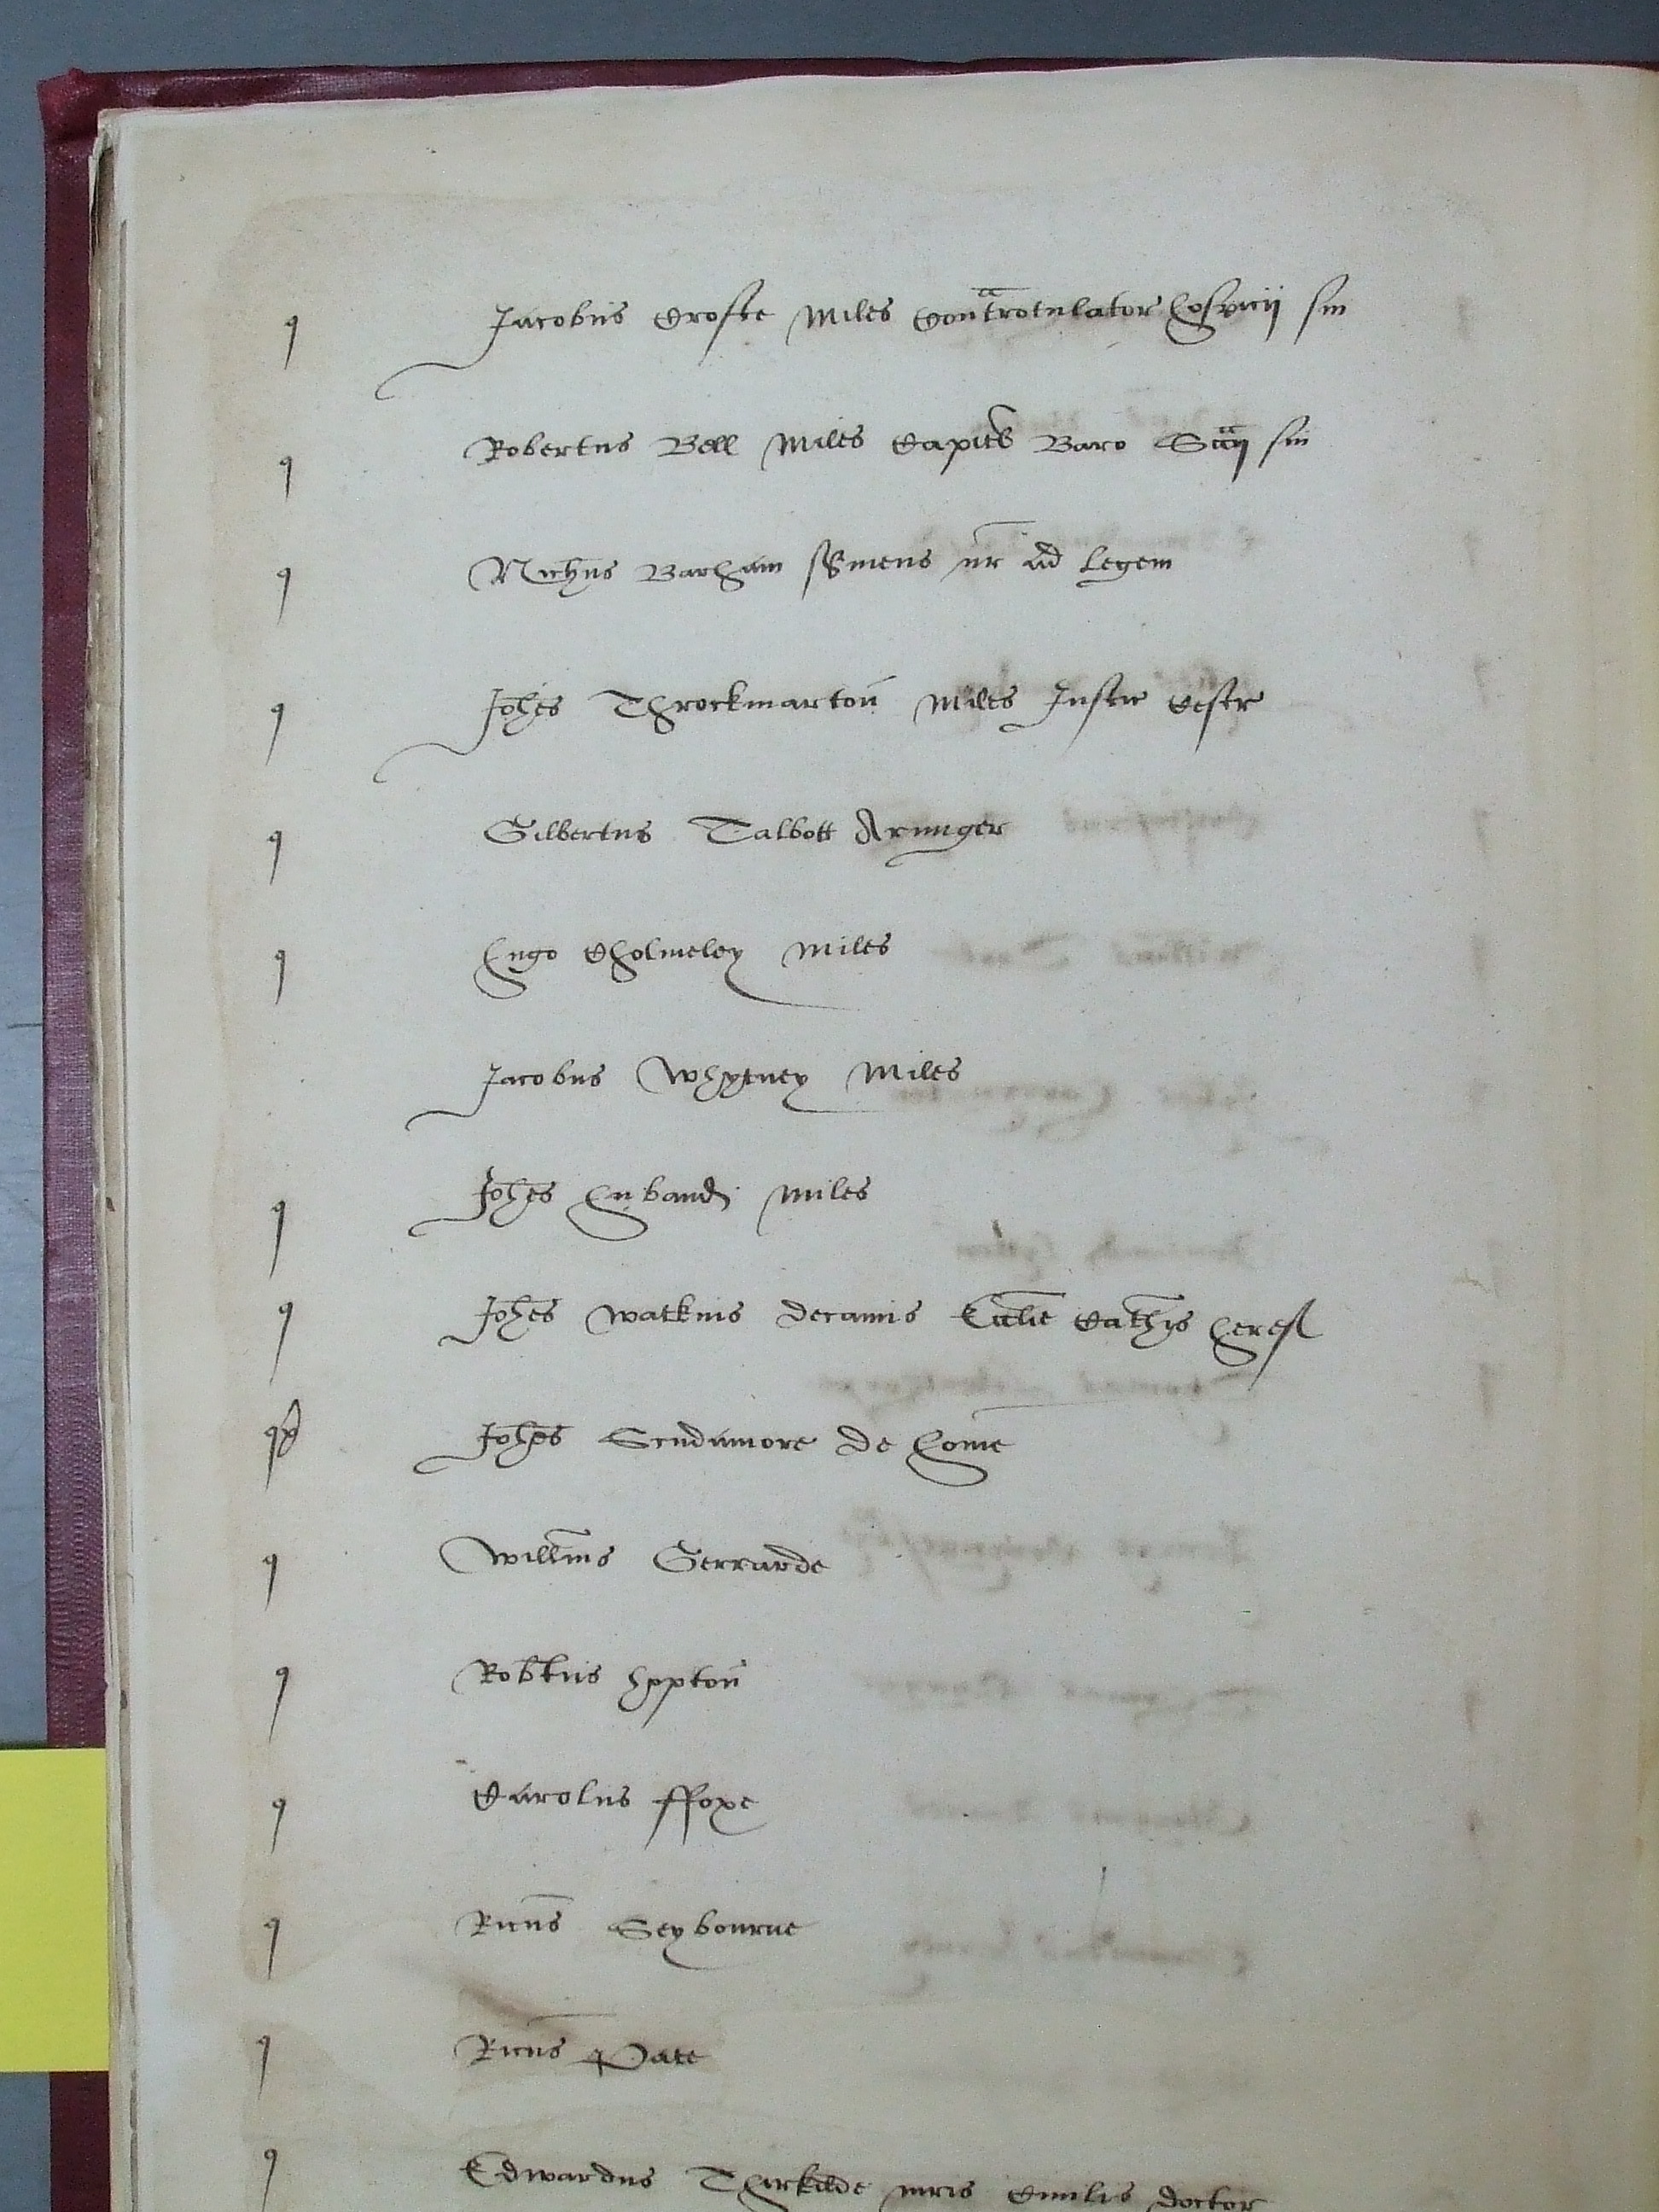 q Jacobus Crofte Miles Contrarotulator Hospicij sui
q Robertus Bell Miles Capitlis Baro Sccij sui
q Nichus Barham s̃viens nr ad legem
q Johes Throckmarton Miles Justic Cestr
q Gilbertus Talbott Armiger
q Hugo Cholmeley Miles
Jacobus Whytney Miles
q Johes Hubaud Miles
q Johes Watkins decanus Ecclie Cathis Heref
Johes Scudamore de Home
q Willms Gerrarde
q Robtus Hopton
q Carolus ffoxe
q Ricus Seybourne
q Ricus Pate
q Edwardus Thirkilde iuris Civilis doctor